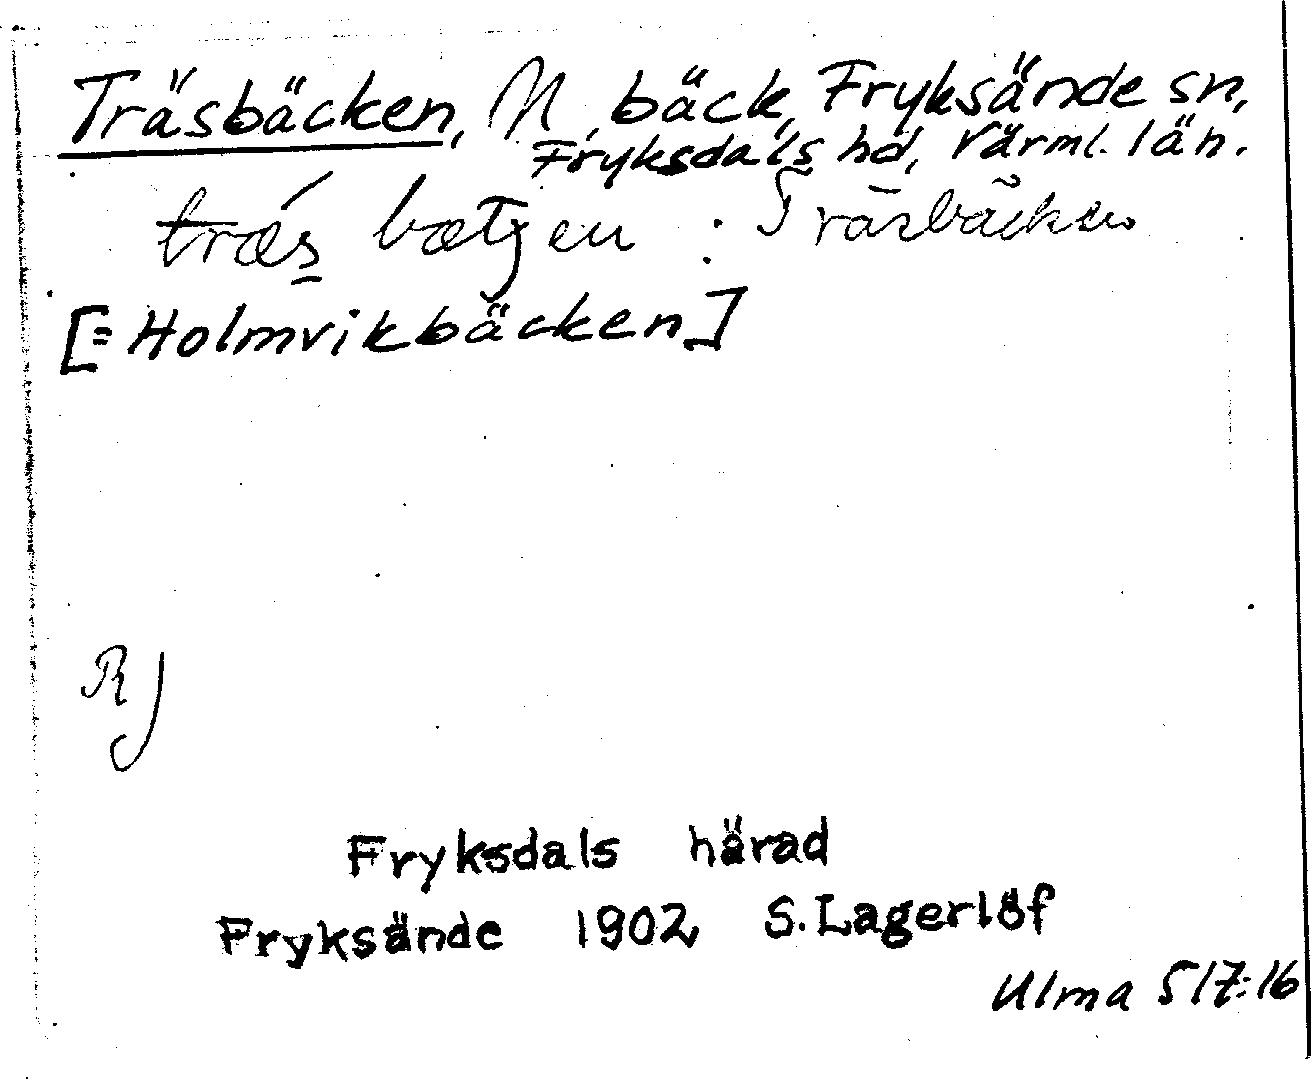 Träsbäcken, N, bäck, Fryksände sn,
Fryksdals hd, Värml. län.
træ´s bætȷen : Träsbäcken
[= Holmvikbäcken]
RJ
Fryksdals härad
Fryksände 1902 S. Lagerlöf
Ulma 517:16